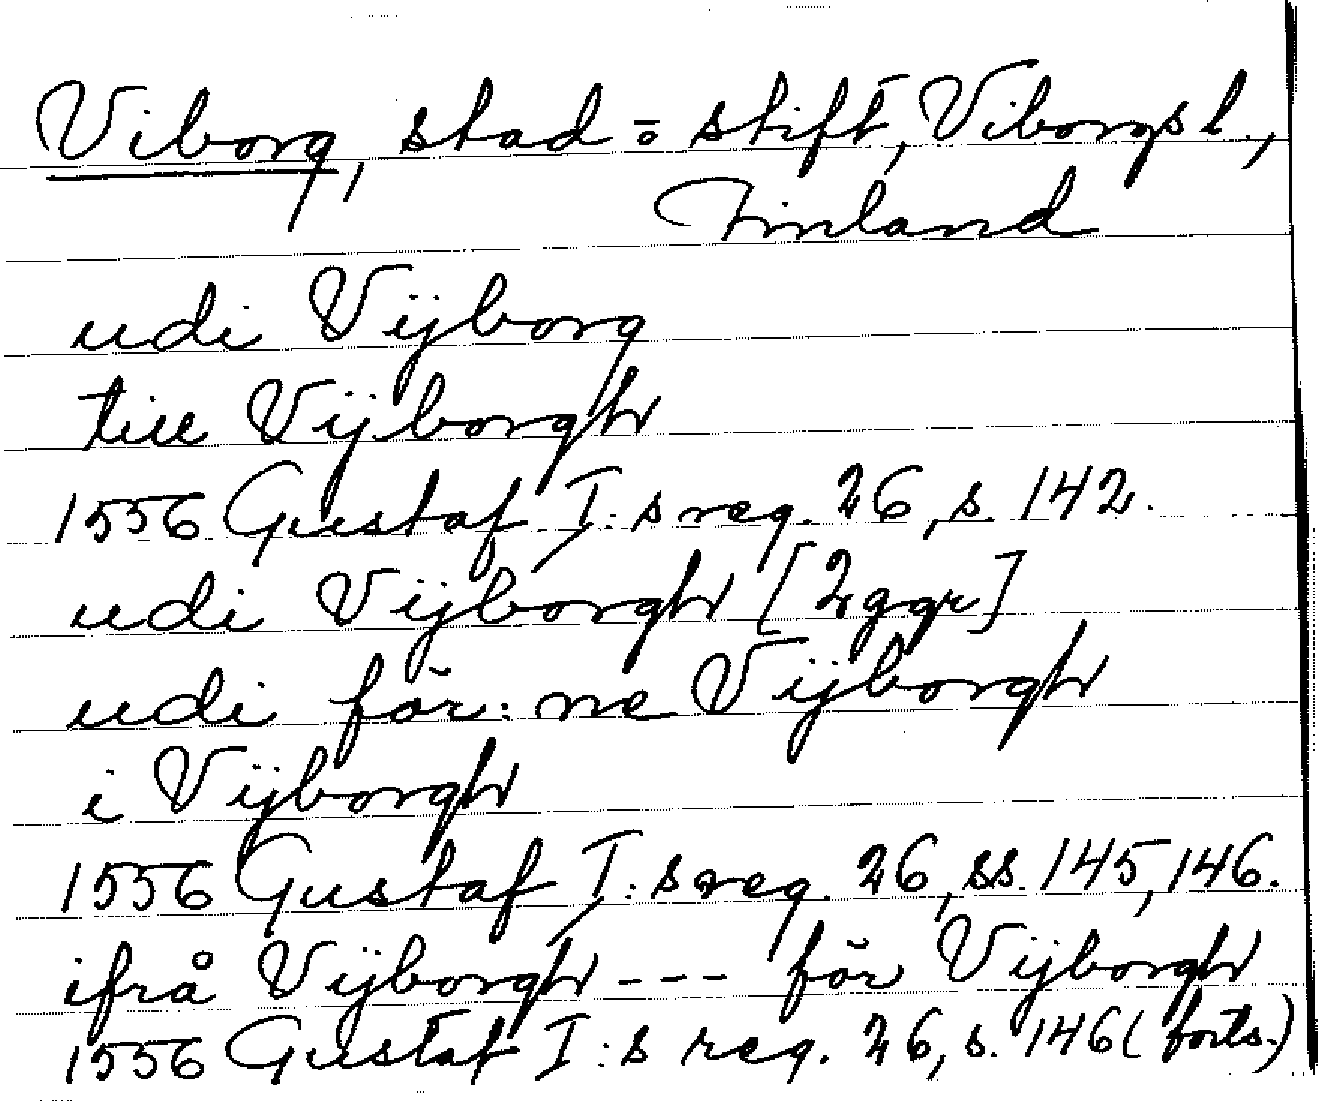 Viborg, stad o stift, Viborgs l.,
Finland
udi Vijborg
till Vijborgh
1556 Gustaf I:s reg. 26, s. 142.
udi Vijborgh [2 ggr]
udi för:ne Vijborgh
i Vijborgh
1556 Gustaf I:s reg. 26, ss. 145, 146.
ifrå Vijborgh --- för Vijborgh
1556 Gustaf I:s reg. 26, s. 146 (forts.)